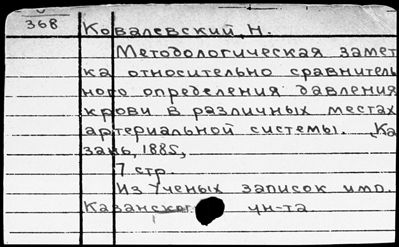 368
Ковалевский, Н.
Методологическая замет
ка относительно сравнитель
ного определения давления
крови в различных местах
артериальной системы. Ка
зань, 1885,
7 стр.
Из Ученых записок имп.
Казанског ун-та